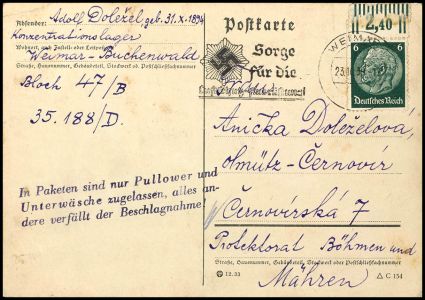 Absender: Adolf Doležel geb. 31.X.1894
Konzentrationslager
Wohnort, auch Zustell- oder Leitpostamt
Weimar-Buchenwald
Straße, Hausnummer, Gebäudeteil, Stockwerk od. Postschließfachnummer
Block 47/B
35.188/D.
In Paketen sind nur Pullower und
Unterwäsche zugelassen, alles an-
dere verfällt der Beschlagnahme!
12.33
Postkarte
Sorge
für die
2,40
WEIMAR
23.
6
Deutsches Reich
Anička Doleželová
Olmütz-Černovír
Černovírská 7
Protektorat Böhmen und
Straße, Hausnummer, Gebäudeteil, Stockwerk oder Postschließfachnummer
Mähren
C 154